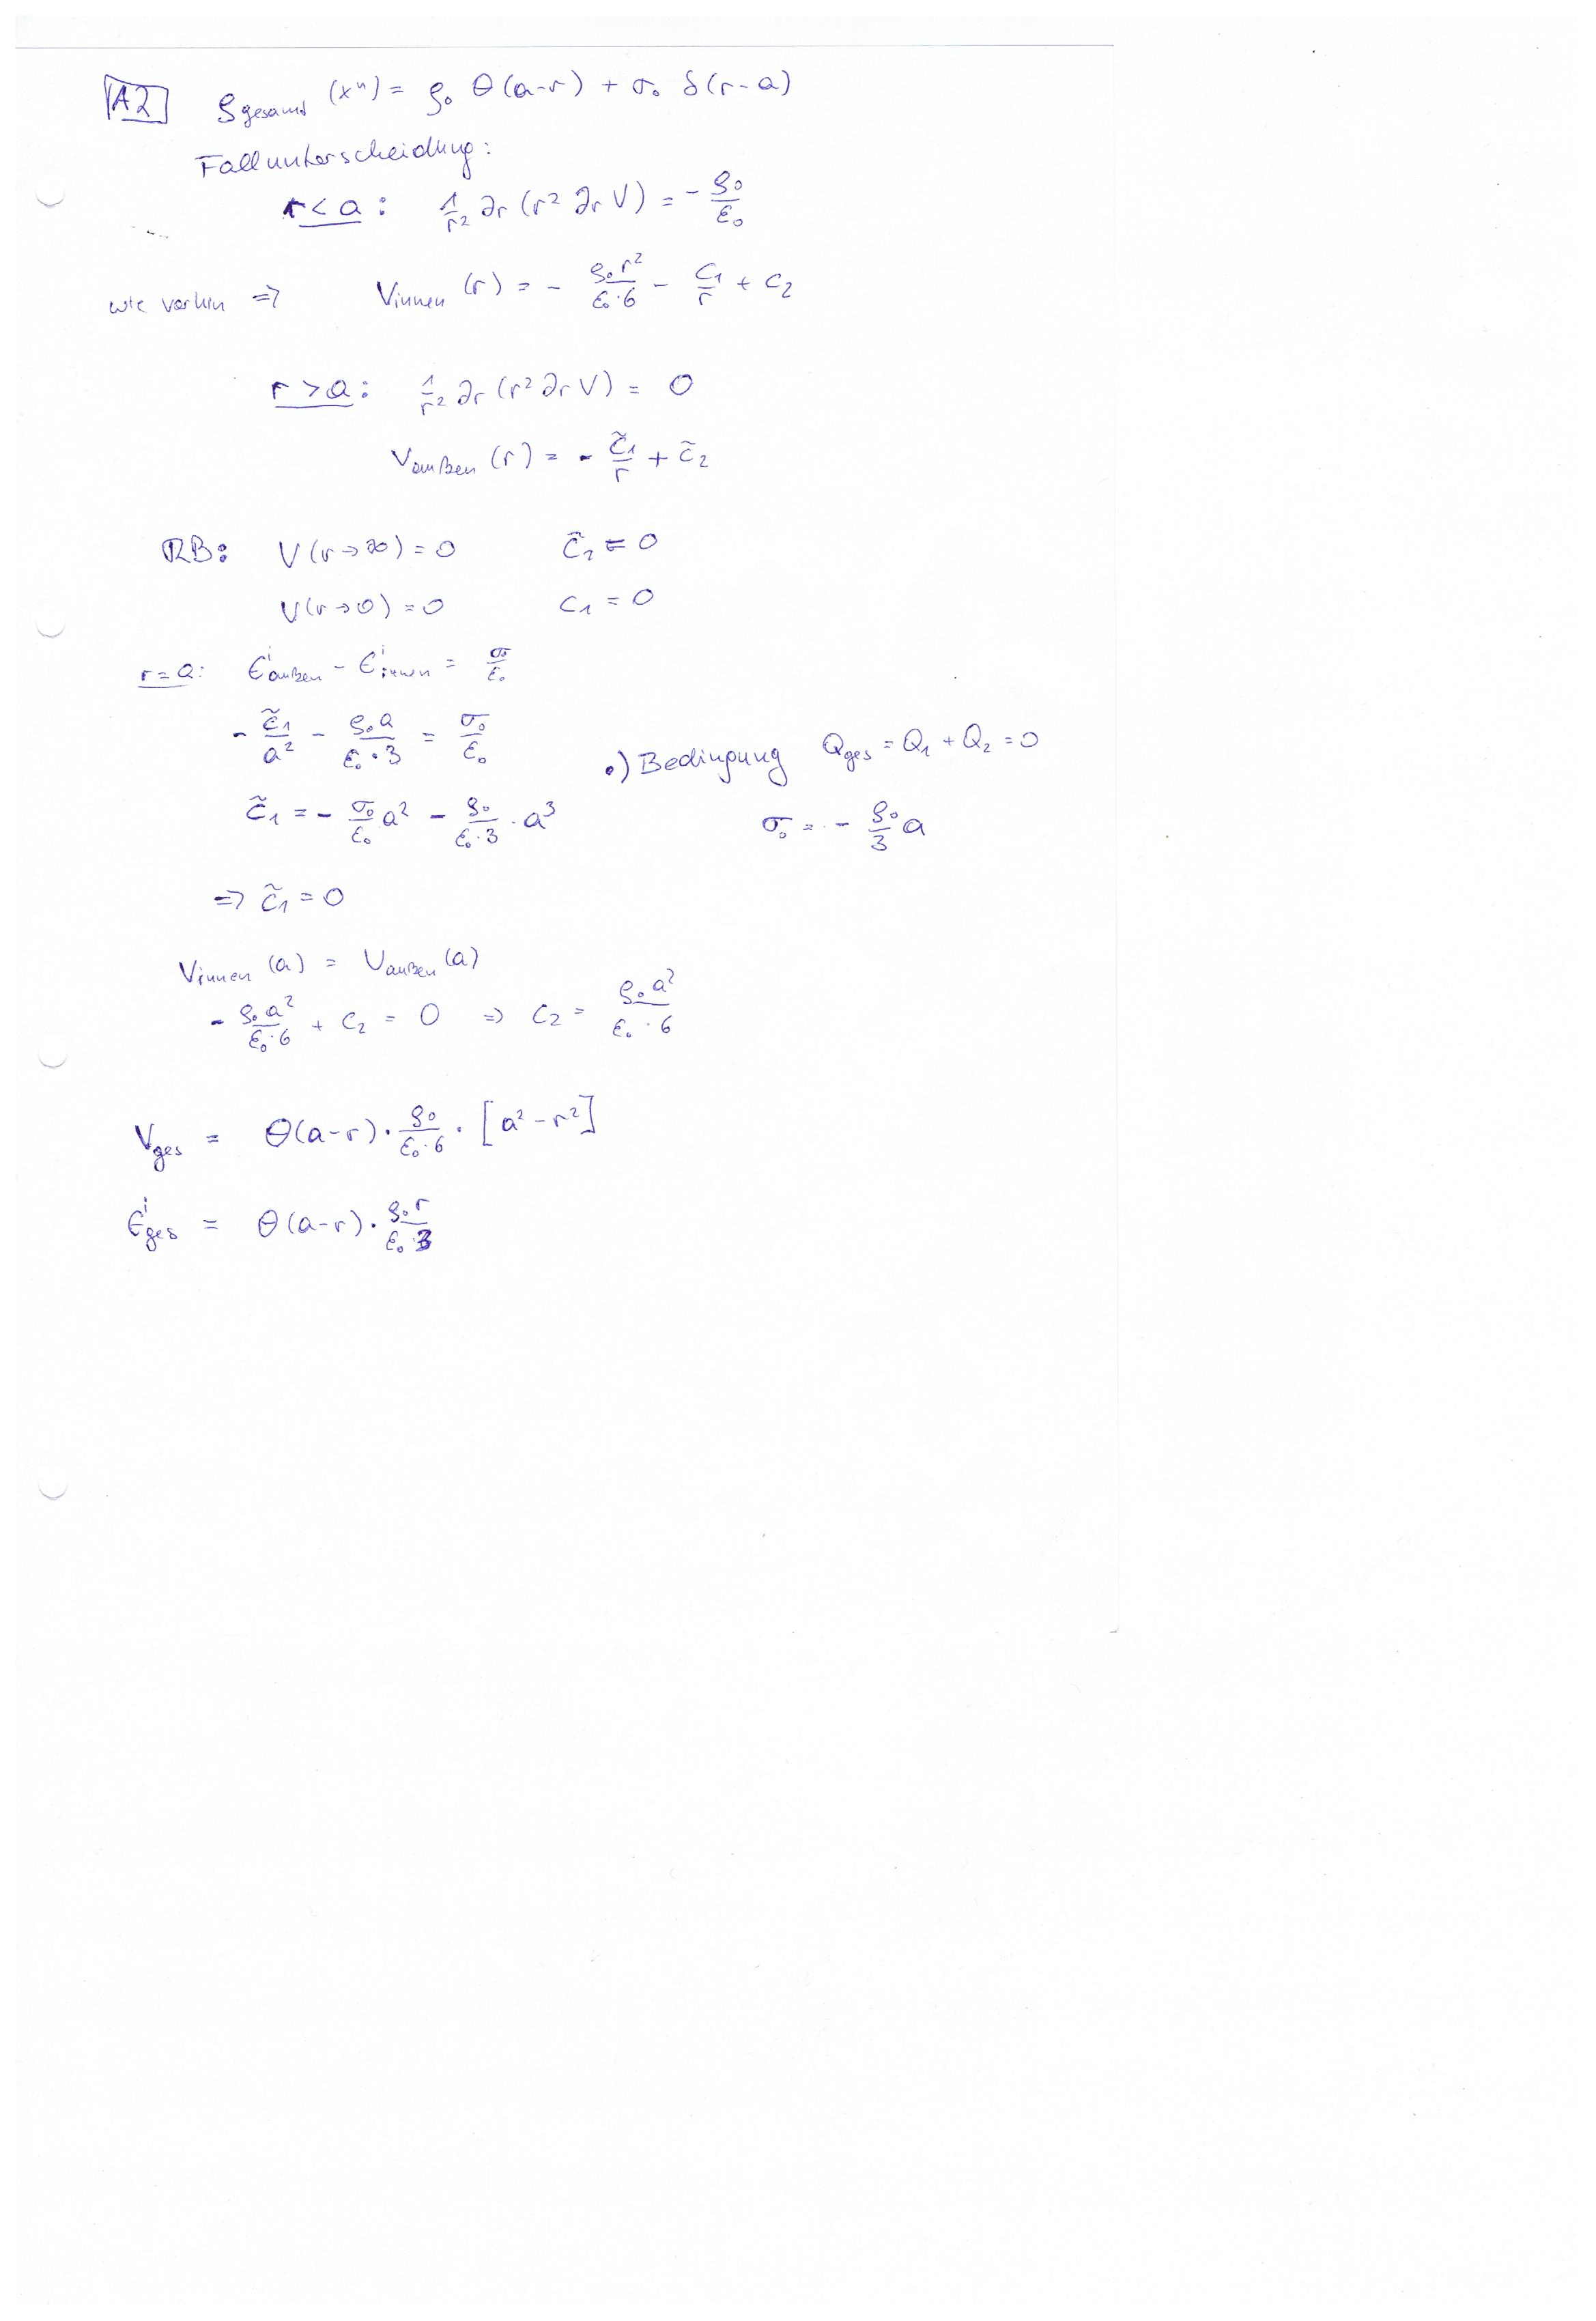 A2 ρgesamt (xⁿ) = ρ₀ Θ(a-r) + σ₀ δ(r-a)
Fallunterscheidung:
r<a: 1/r² ∂r (r² ∂r V) = - ρ₀/ε₀
wie vorhin ⇒ Vinnen (r) = - ρ₀r²/(ε₀·6) - C₁/r + C₂
r>a: 1/r² ∂r (r² ∂r V) = 0
Vaußen (r) = - C̃₁/r + C̃₂
RB: V(r→∞) = 0 C̃₂ = 0
V(r→0) = 0 C₁ = 0
r=a: Eⁱaußen - Eⁱinnen = σ₀/ε₀
- C̃₁/a² - ρ₀a/(ε₀·3) = σ₀/ε₀
•) Bedingung Qges = Q₁ + Q₂ = 0
C̃₁ = - σ₀/ε₀ a² - ρ₀/(ε₀·3) · a³
σ₀ = - ρ₀/3 a
⇒ C̃₁ = 0
Vinnen (a) = Vaußen (a)
- ρ₀a²/(ε₀·6) + C₂ = 0 ⇒ C₂ = ρ₀a²/(ε₀·6)
Vges = Θ(a-r) · ρ₀/(ε₀·6) · [a²-r²]
Eⁱges = Θ(a-r) · ρ₀r/(ε₀·3)